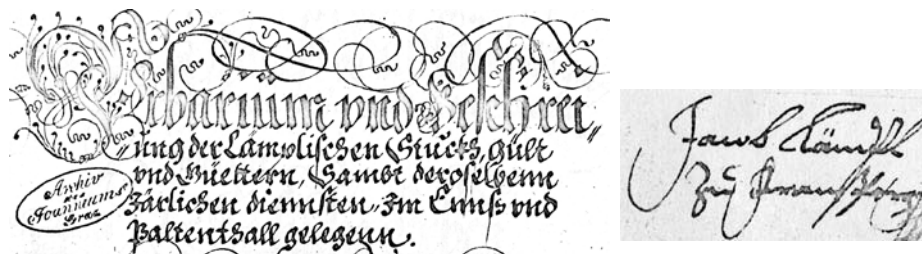 Urbarium vnd Beschrei„
„ung der Lämplischen Stuckh, gült
vnd Güettern, Sambt deroselbenn
Järlichen diennsten, Im Ennß vnd
Paltenthall gelegenn.
Archiv
des
Joanneums
Graz
Jacob Lämpl
Zu